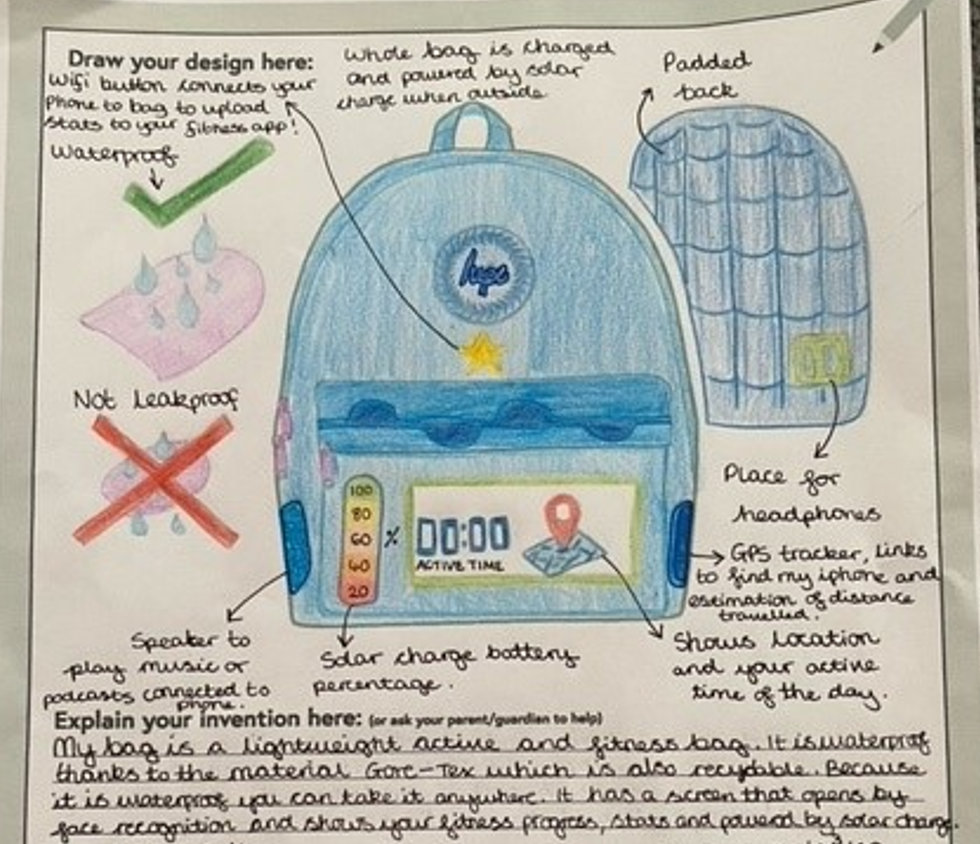 Draw your design here:
Wifi button connects your
phone to bag to upload
stats to your fitness app!
Waterproof
Whole bag is charged
and powered by solar
charge when outside
Padded
back
hype
Not leakproof
100
80
60
40
20
%
00:00
ACTIVE TIME
Place for
headphones
GPS tracker, links
to find my iphone and
estimation of distance
travelled.
Speaker to
play music or
podcasts connected to
phone.
Solar charge battery
percentage.
Shows location
and your active
time of the day.
Explain your invention here: (or ask your parent/guardian to help)
My bag is a lightweight active and fitness bag. It is waterproof
thanks to the material Gore-Tex which is also recyclable. Because
it is waterproof you can take it anywhere. It has a screen that opens by
face recognition and shows your fitness progress, stats and powered by solar charge.